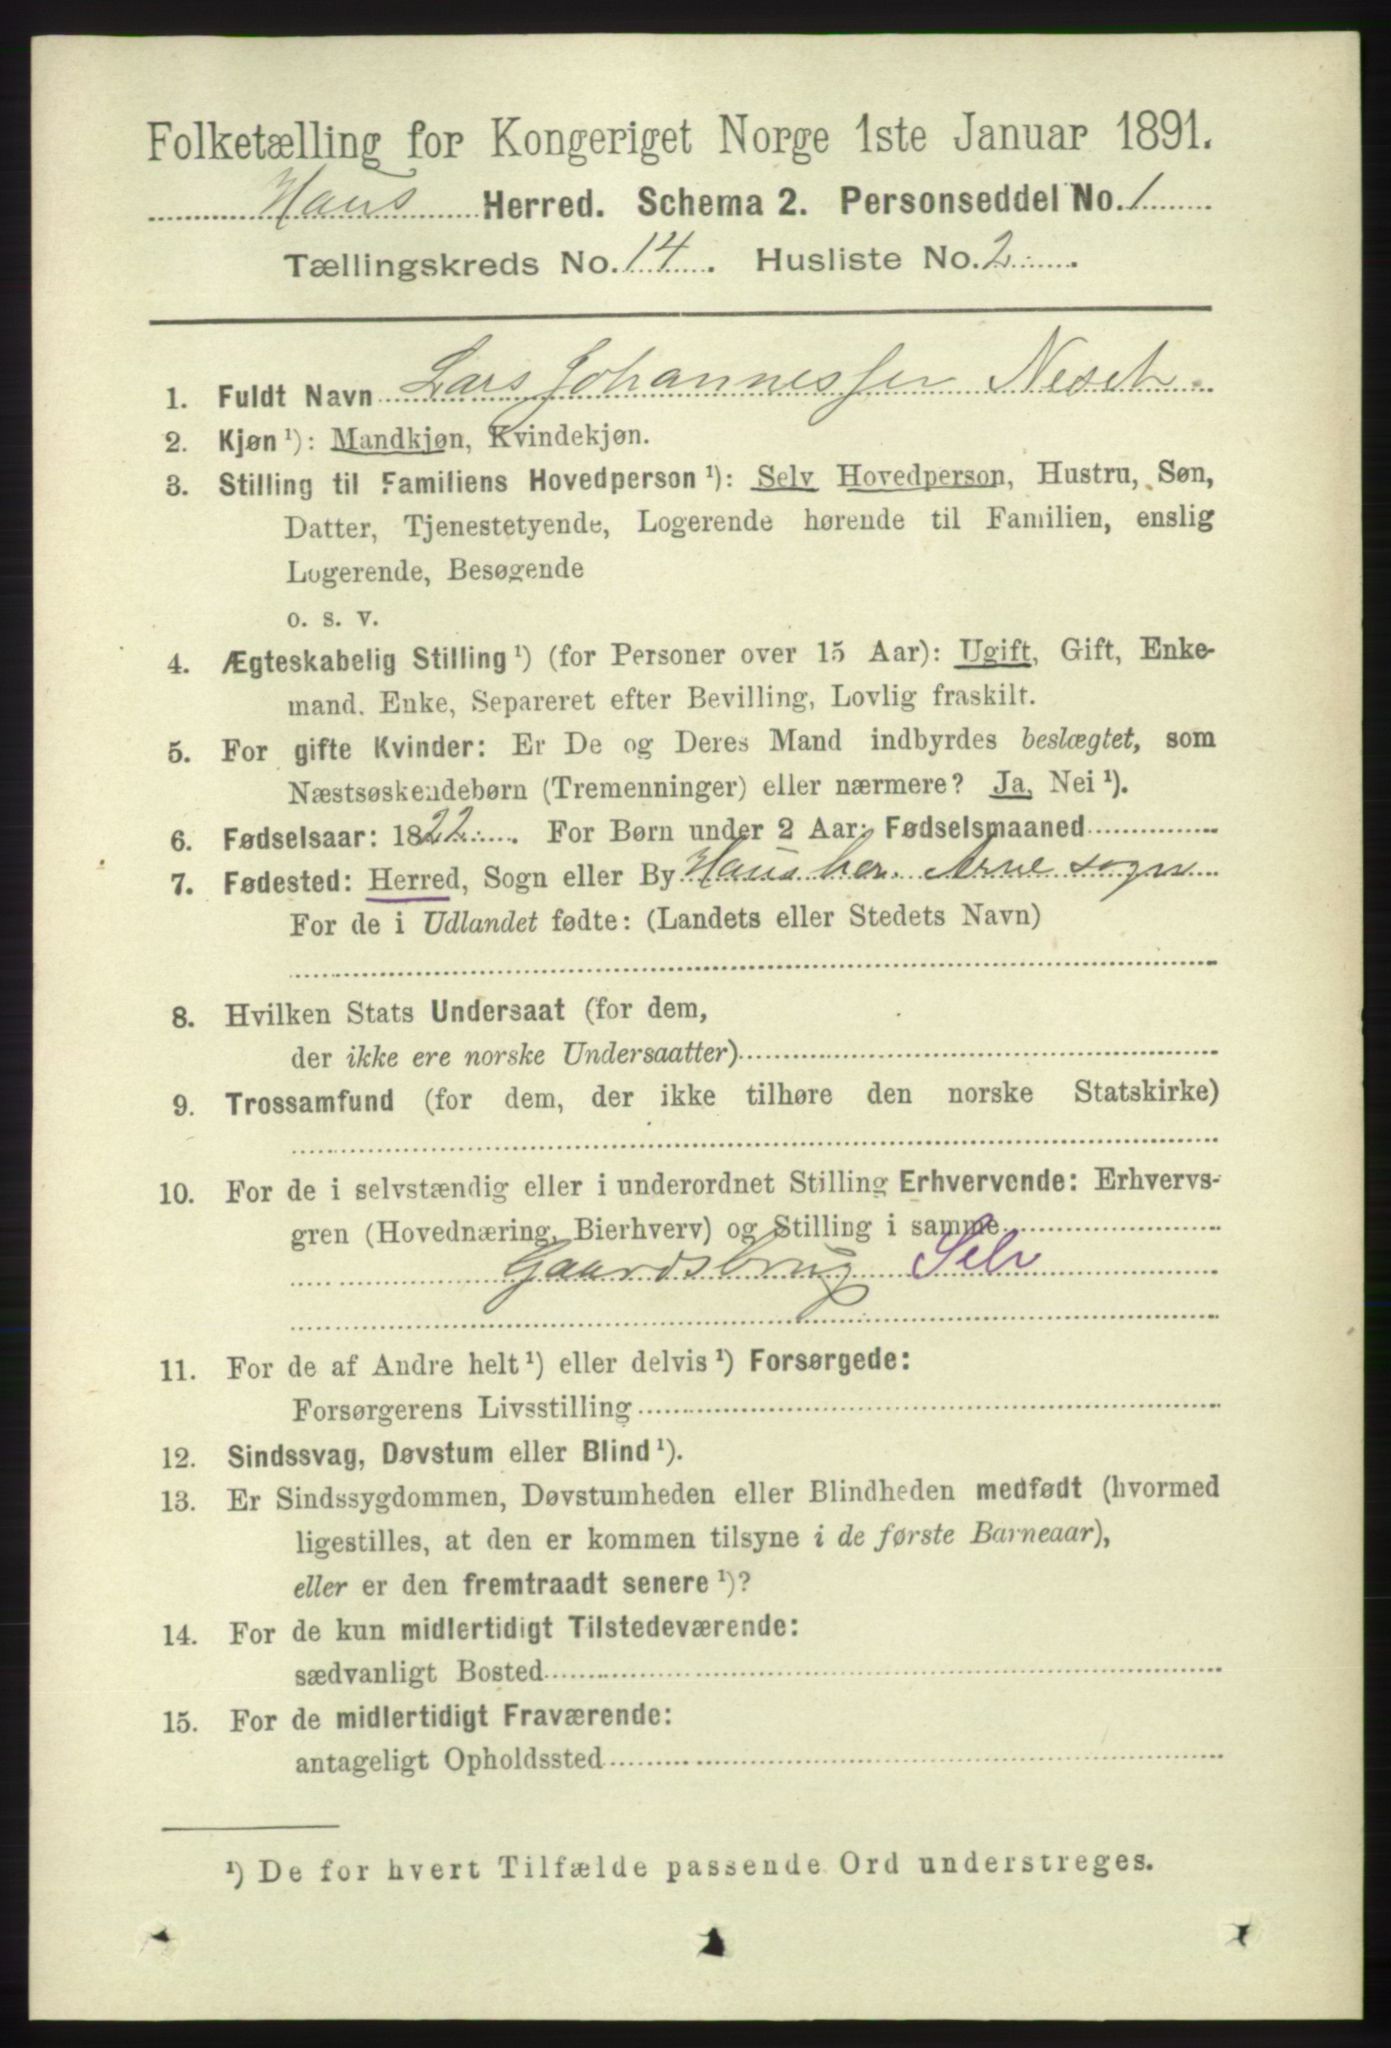 Folketælling for Kongeriget Norge 1ste Januar 1891.
Haus Herred. Schema 2. Personseddel No. 1
Tællingskreds No. 14. Husliste No. 2.
1. Fuldt Navn Lars Johannessen Neset.
2. Kjøn ¹): Mandkjøn, Kvindekjøn.
3. Stilling til Familiens Hovedperson ¹): Selv Hovedperson, Hustru, Søn,
Datter, Tjenestetyende, Logerende hørende til Familien, enslig
Logerende, Besøgende
o. s. v.
4. Ægteskabelig Stilling ¹) (for Personer over 15 Aar): Ugift, Gift, Enke-
mand. Enke, Separeret efter Bevilling, Lovlig fraskilt.
5. For gifte Kvinder: Er De og Deres Mand indbyrdes beslægtet, som
Næstsøskendebørn (Tremenninger) eller nærmere? Ja, Nei ¹).
6. Fødselsaar: 1822. For Børn under 2 Aar: Fødselsmaaned
7. Fødested: Herred, Sogn eller By Haus her. Arne sogn
For de i Udlandet fødte: (Landets eller Stedets Navn)
8. Hvilken Stats Undersaat (for dem,
der ikke ere norske Undersaatter)
9. Trossamfund (for dem, der ikke tilhøre den norske Statskirke)
10. For de i selvstændig eller i underordnet Stilling Erhvervende: Erhvervs-
gren (Hovednæring, Bierhverv) og Stilling i samme
Gaardsbrug Selv
11. For de af Andre helt ¹) eller delvis ¹) Forsørgede:
Forsørgerens Livsstilling
12. Sindssvag, Døvstum eller Blind ¹).
13. Er Sindssygdommen, Døvstumheden eller Blindheden medfødt (hvormed
ligestilles, at den er kommen tilsyne i de første Barneaar),
eller er den fremtraadt senere ¹)?
14. For de kun midlertidigt Tilstedeværende:
sædvanligt Bosted
15. For de midlertidigt Fraværende:
antageligt Opholdssted
¹) De for hvert Tilfælde passende Ord understreges.